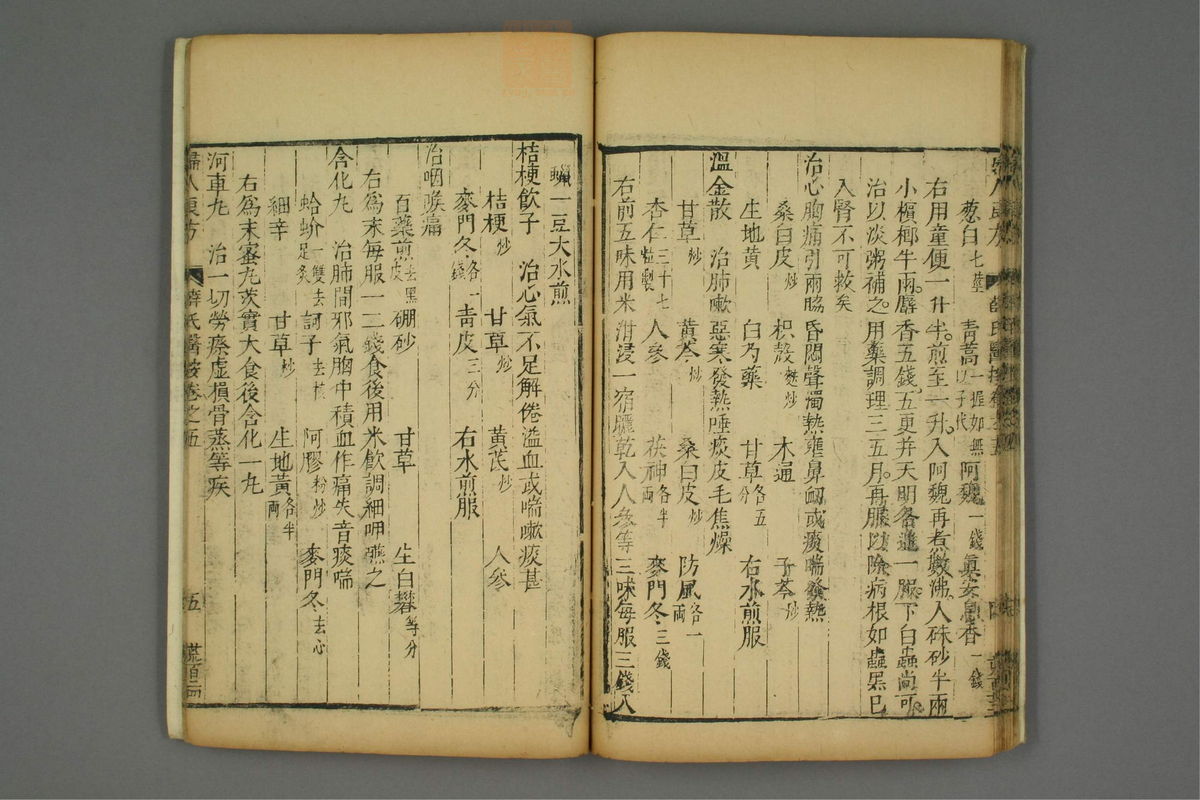 葱白七莖 青蒿一握如無以子代 阿魏一錢 真安息香一錢
右用童便一升半煎至一升入阿魏再煮數沸入硃砂半兩
小檳榔半兩麝香五錢五更并天明各進一服下白蟲尚可
治以淡粥補之用藥調理三五月再服以除病根如蟲黑已
入腎不可救矣
治心胸痛引兩脇 昏悶聲濁熱壅鼻衄或痰喘發熱
桑白皮炒 枳殼麩炒 木通 子芩炒
生地黃 白芍藥 甘草各五分 右水煎服
溫金散 治肺嗽惡寒發熱唾痰皮毛焦燥
甘草炒 黃芩炒 桑白皮炒 防風各一兩
杏仁三十七粒製 人參 茯神各半兩 麥門冬三錢
右前五味用米泔浸一宿曬乾入人參等三味每服三錢入
蠟一豆大水煎
桔梗飲子 治心氣不足解倦溢血或喘嗽痰甚
桔梗炒 甘草炒 黃芪炒 人參
麥門冬各一錢 青皮三分 右水煎服
治咽喉痛
百藥煎去黑皮 硼砂 甘草 生白礬等分
右為末每服一二錢食後用米飲調細呷嚥之
含化丸 治肺間邪氣胸中積血作痛失音痰喘
蛤蚧一雙去足炙 訶子去核 阿膠粉炒 麥門冬去心
細辛 甘草炒 生地黃各半兩
右為末蜜丸芡實大食後含化一丸
河車丸 治一切勞瘵虛損骨蒸等疾
婦人良方 薛氏醫按卷之五 五